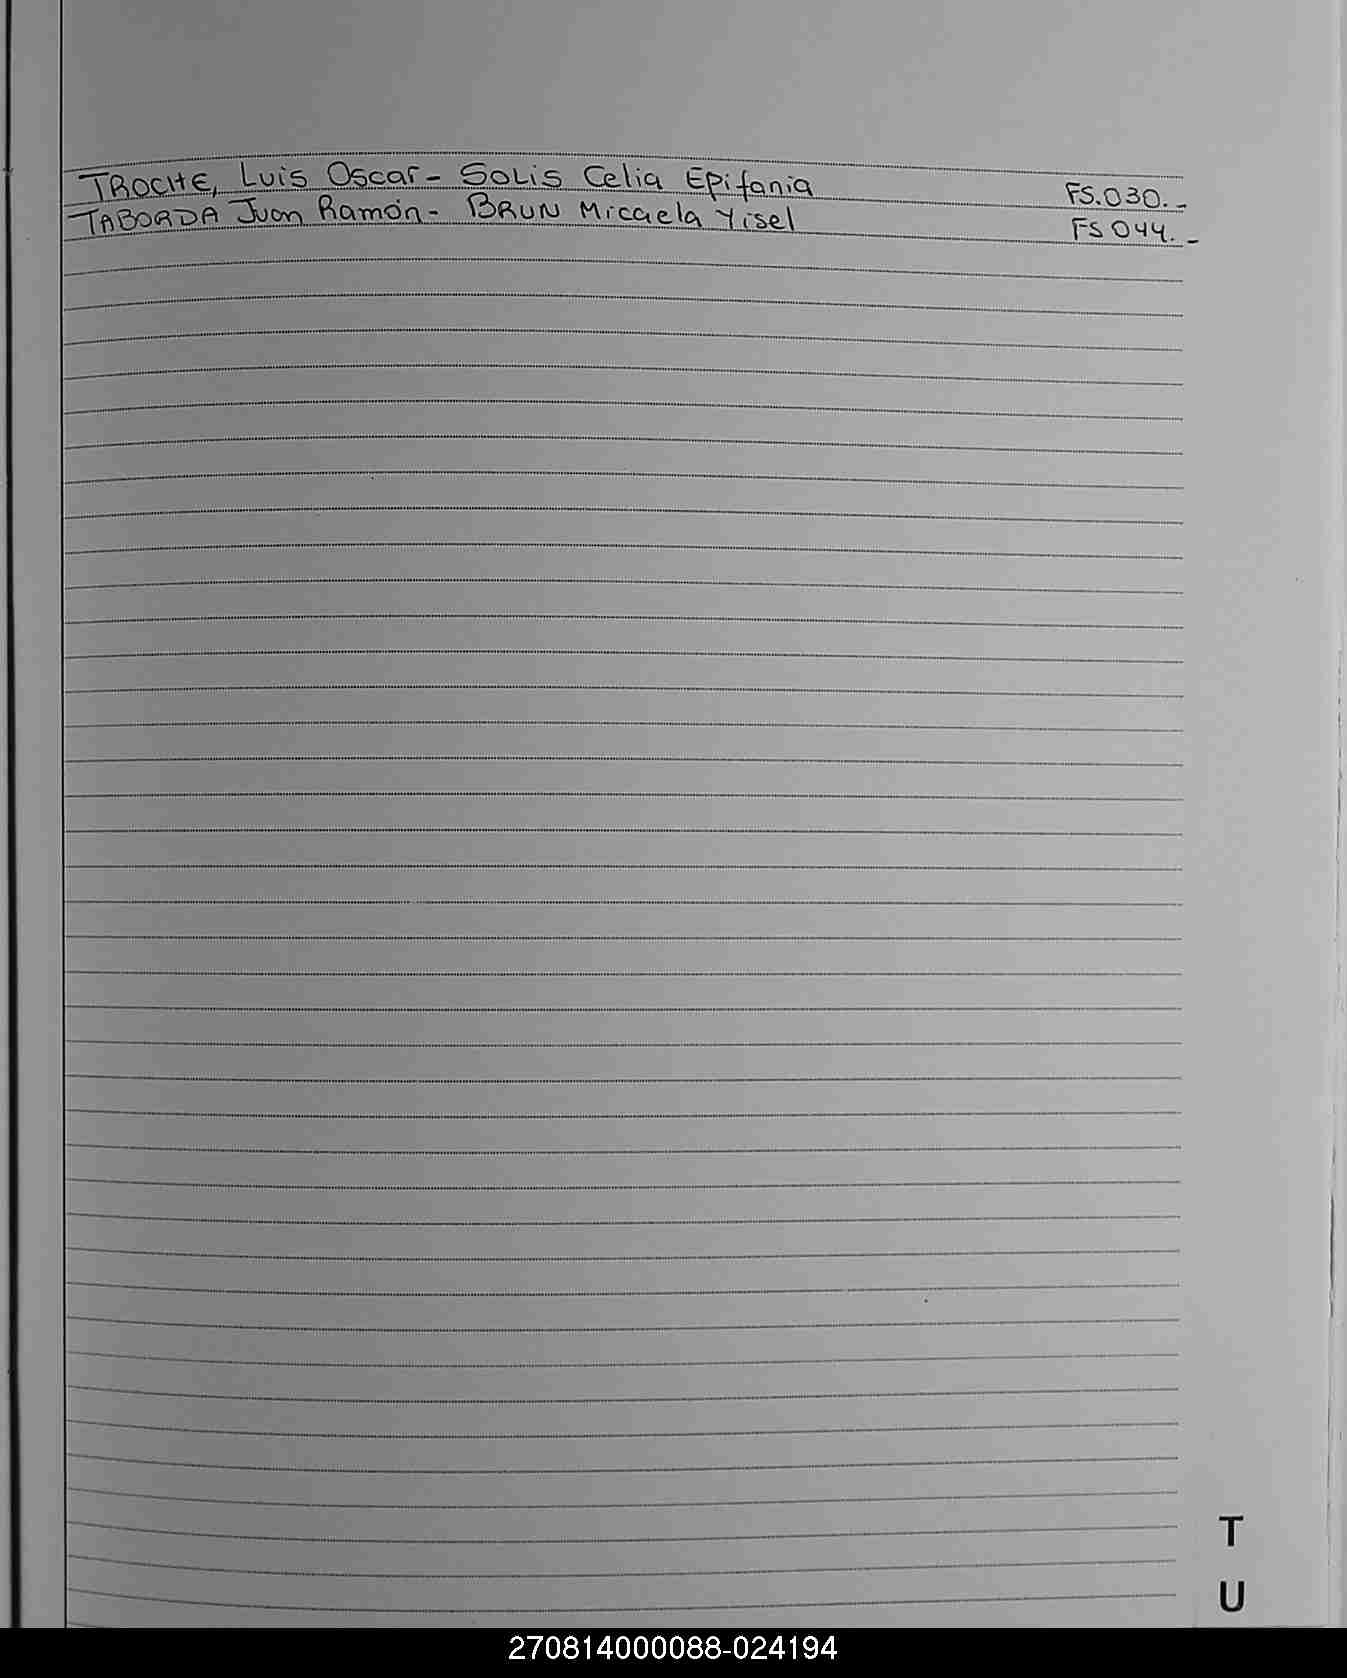 TROCHE, Luis Oscar - SOLIS Celia Epifania FS.030.-
TABORDA Juan Ramón - BRUN Micaela Yisel FS 044.-
T
U
270814000088-024194